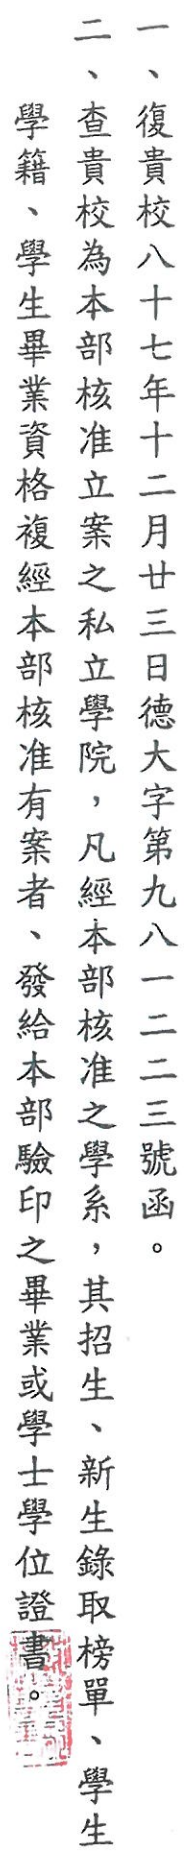 一、復貴校八十七年十二月廿三日德大字第九八一二二三號函。
二、查貴校為本部核准立案之私立學院，凡經本部核准之學系，其招生、新生錄取榜單、學生
學籍、學生畢業資格複經本部核准有案者、發給本部驗印之畢業或學士學位證書。